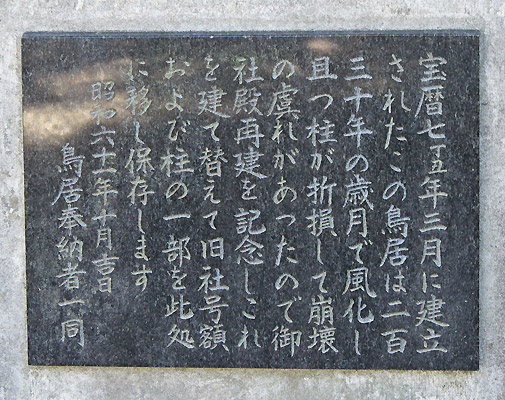 宝暦七丁丑年三月に建立
されたこの鳥居は二百
三十年の歳月で風化し
且つ柱が折損して崩壊
の虞れがあつたので御
社殿再建を記念しこれ
を建て替えて旧社号額
および柱の一部を此処
に移し保存します
昭和六十一年十月吉日
鳥居奉納者一同